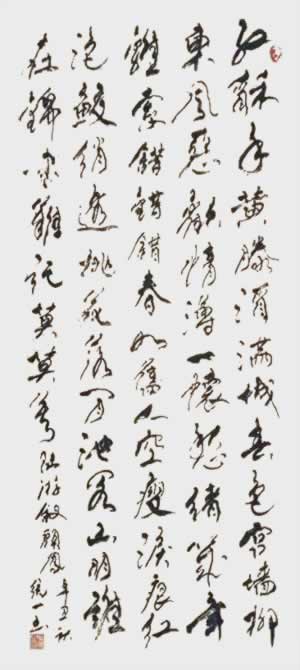 红酥手黄滕酒满城春色宫墙柳
東風惡歡情薄一懷愁緒幾年
離索錯錯錯春如舊人空瘦淚痕红
浥鮫綃透桃花落閒池閣山盟雖
在錦書難託莫莫莫陆游釵頭鳳辛丑秋統一书